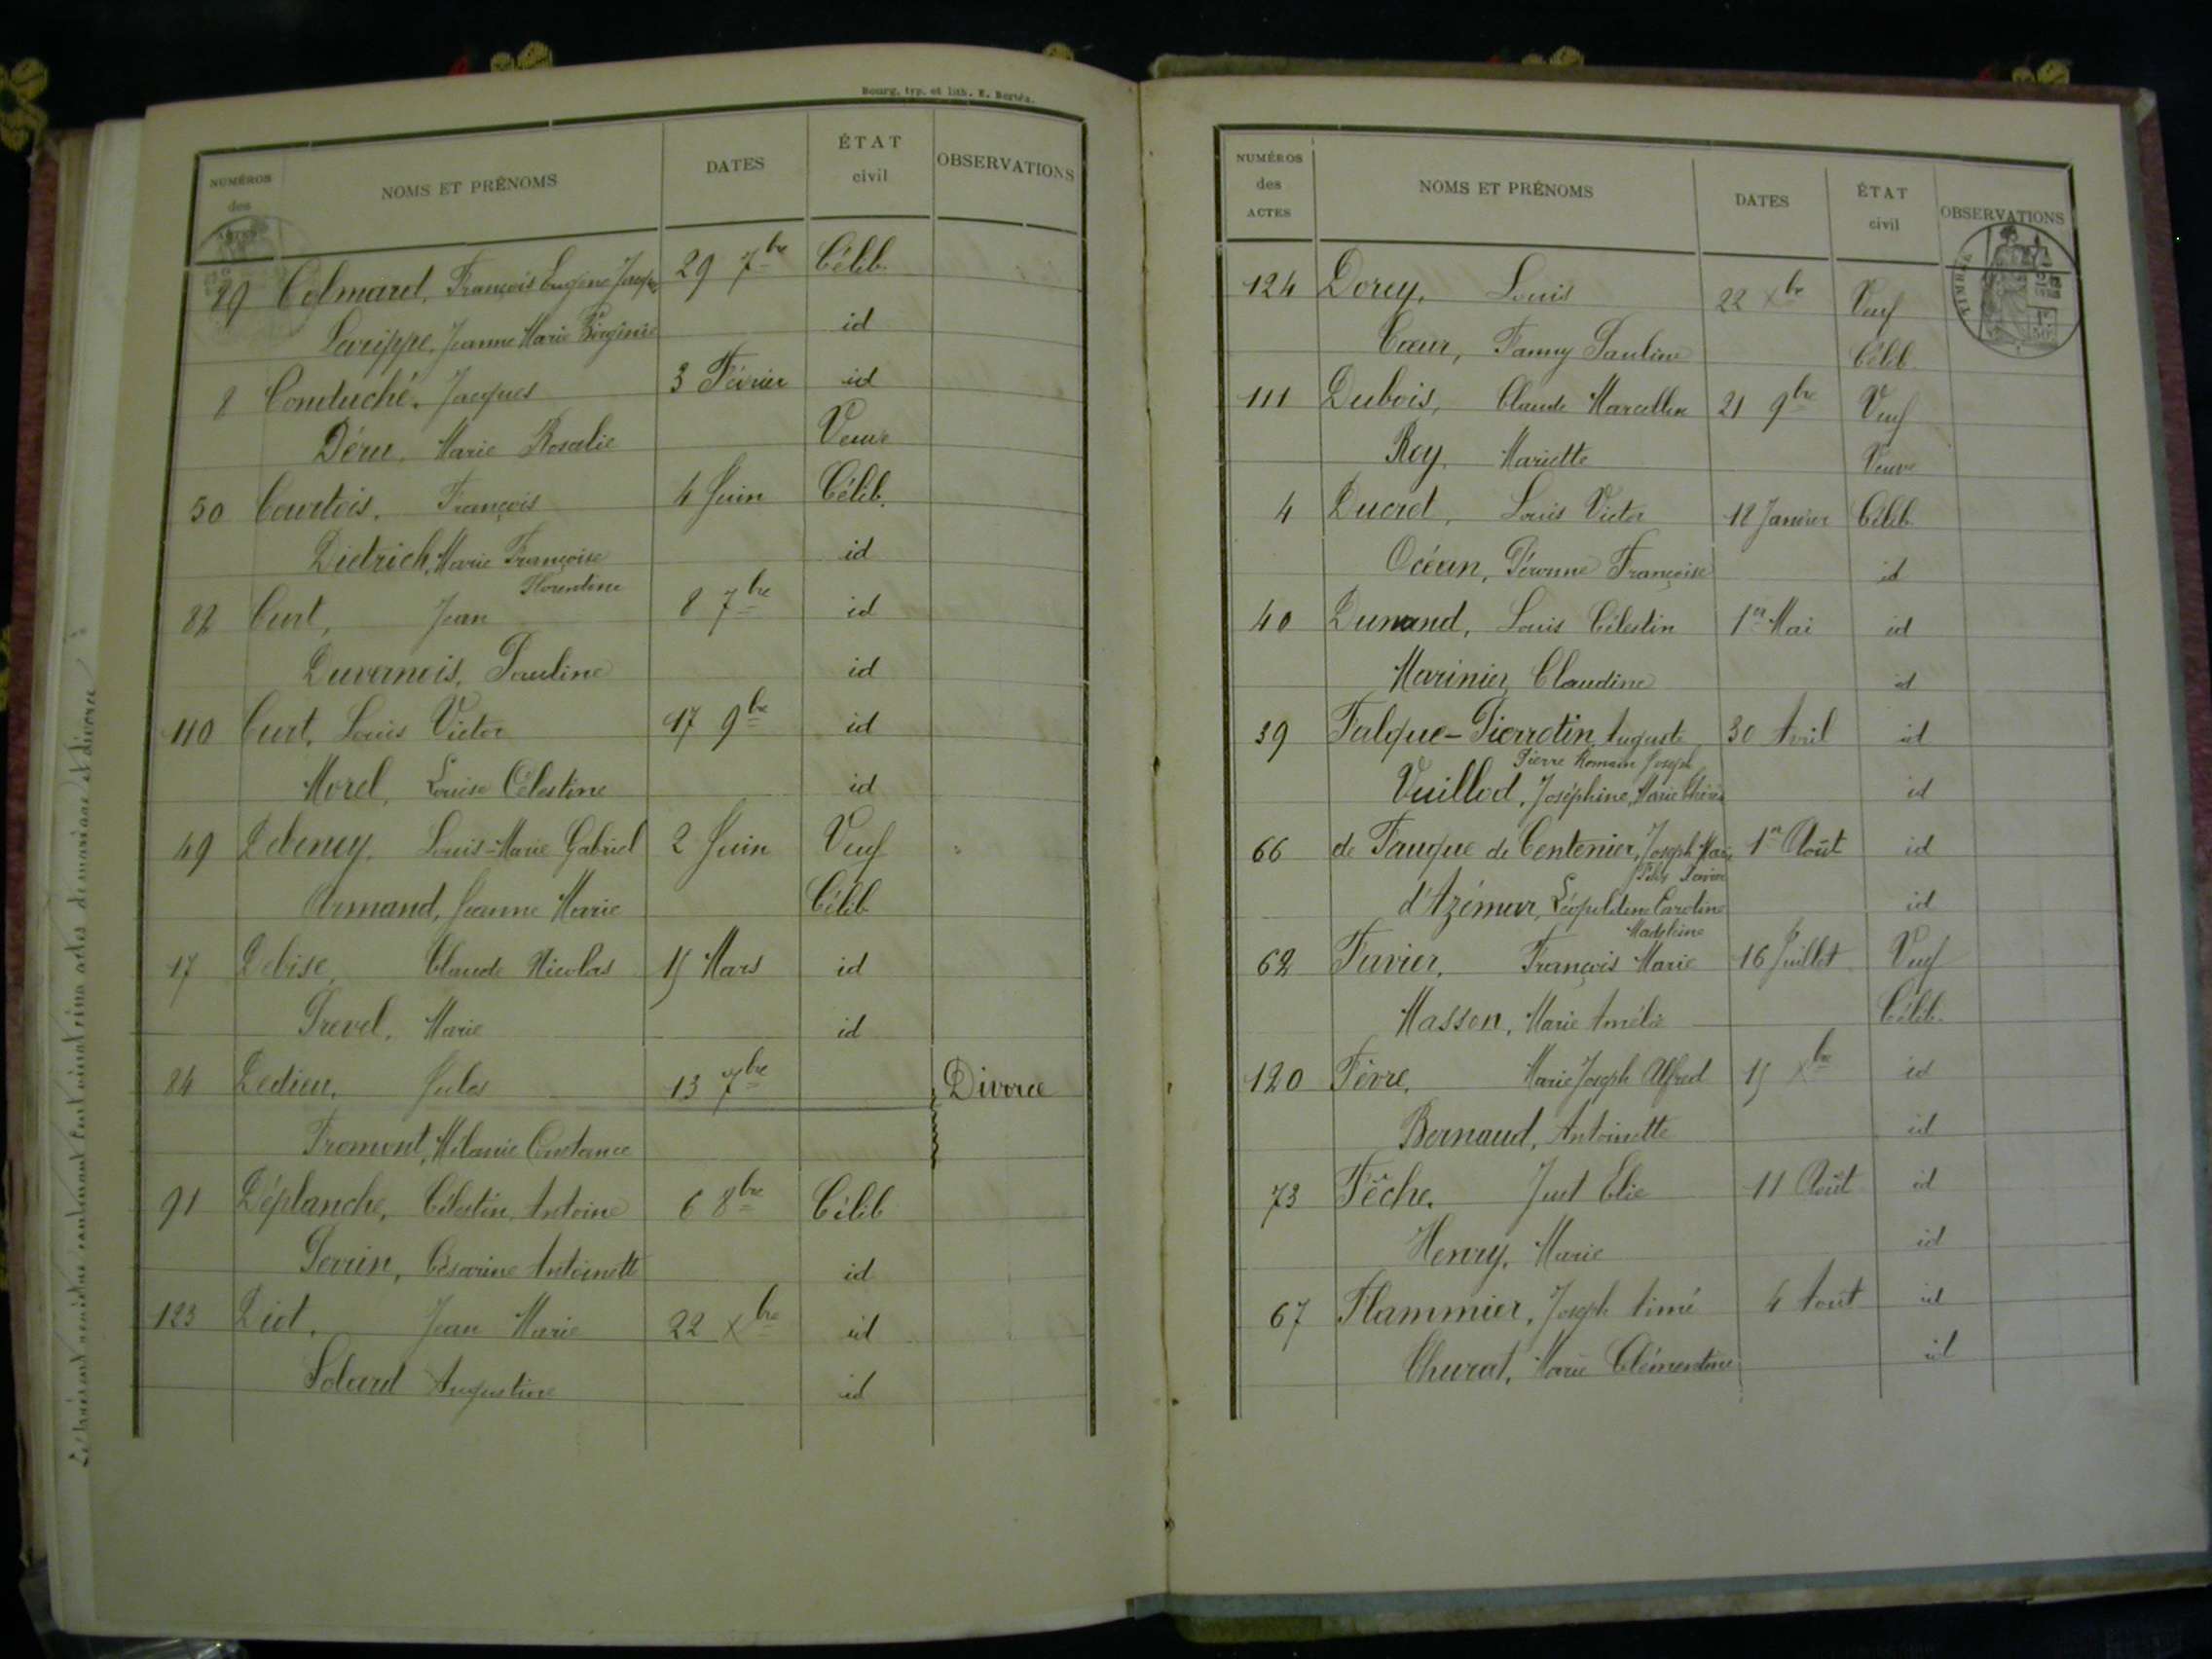 Bourg, typ. et lith. E. Bertéa.
NUMÉROS des ACTES NOMS ET PRÉNOMS DATES ÉTAT civil OBSERVATIONS
89 Colmard, François Eugène Joseph 29 7bre Célib.
Larippe, Jeanne Marie Virginie id
8 Conduché, Jacques 3 Février id
Déru, Marie Rosalie Veuve
50 Courtois, François 4 Juin Célib.
Dietrich, Marie Françoise id
Florentine
82 Curt, Jean 8 7bre id
Duvernois, Pauline id
110 Curt, Louis Victor 17 9bre id
Morel, Louise Célestine id
49 Debeney, Louis-Marie Gabriel 2 Juin Veuf
Armand, Jeanne Marie Célib
17 Debise, Claude Nicolas 15 Mars id
Prevel, Marie id
84 Dedieu, Jules 13 7bre Divorce
Fromont, Mélanie Constance
91 Déplanche, Célestin Antoine 6 8bre Célib
Perrin, Césarine Antoinette id
123 Diot, Jean Marie 22 Xbre id
Solard Augustine id
NUMÉROS des ACTES NOMS ET PRÉNOMS DATES ÉTAT civil OBSERVATIONS
TIMBRE
124 Dorey, Louis 22 Xbre Veuf
Cœur, Fanny Pauline Célib.
111 Dubois, Claude Marcellin 21 9bre Veuf
Roy, Mariette Veuve
4 Ducret, Louis Victor 18 Janvier Célib.
Océan, Péronne Françoise id
40 Dunand, Louis Célestin 1er Mai id
Marinier, Claudine id
39 Falque-Pierrotin, Auguste 30 Avril id
Pierre Romain Joseph
Vuillod, Joséphine, Marie Thérèse id
66 de Fauque de Centenier, Joseph Marie 1er Août id
d'Azémar, Léopoldine Caroline id
Madeleine
62 Favier, François Marie 16 Juillet Veuf
Masson, Marie Amélie Célib.
120 Fèvre, Marie Joseph Alfred 15 Xbre id
Bernaud, Antoinette id
73 Fêche, Just Elie 11 Août id
Henry, Marie id
67 Flammier, Joseph Aimé 4 Août id
Churat, Marie Clémentine id